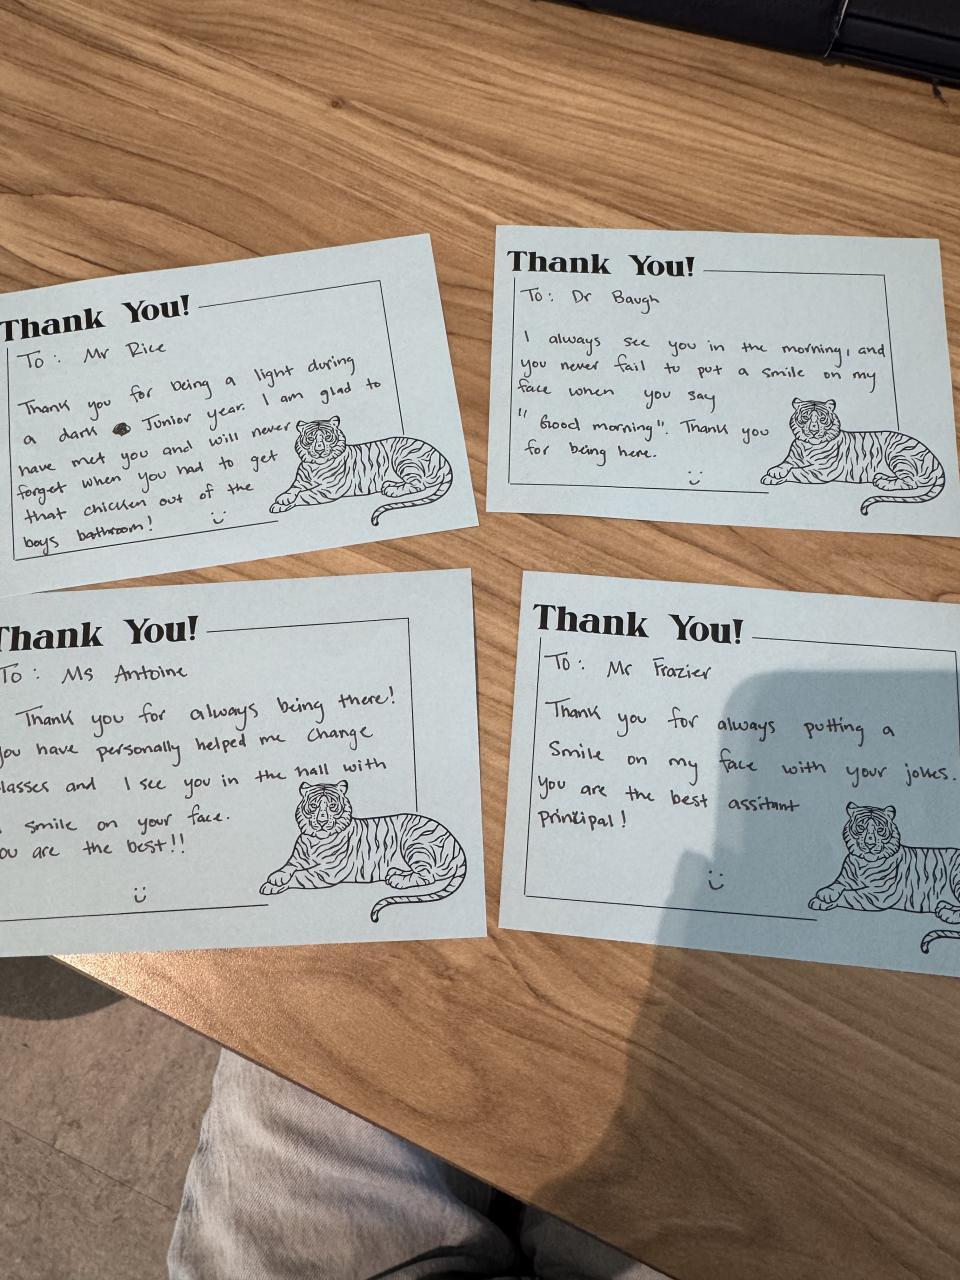 Thank You!
To: Mr Rice
Thank you for being a light during
a dark Junior year. I am glad to
have met you and will never
forget when you had to get
that chicken out of the
boys bathroom!
Thank You!
To: Dr Baugh
I always see you in the morning, and
you never fail to put a smile on my
face when you say
"Good morning". Thank you
for being here.
Thank You!
To: Ms Antoine
Thank you for always being there!
you have personally helped me change
classes and I see you in the hall with
smile on your face.
you are the best!!
Thank You!
To: Mr Frazier
Thank you for always putting a
Smile on my face with your jokes.
you are the best assitant
Principal!